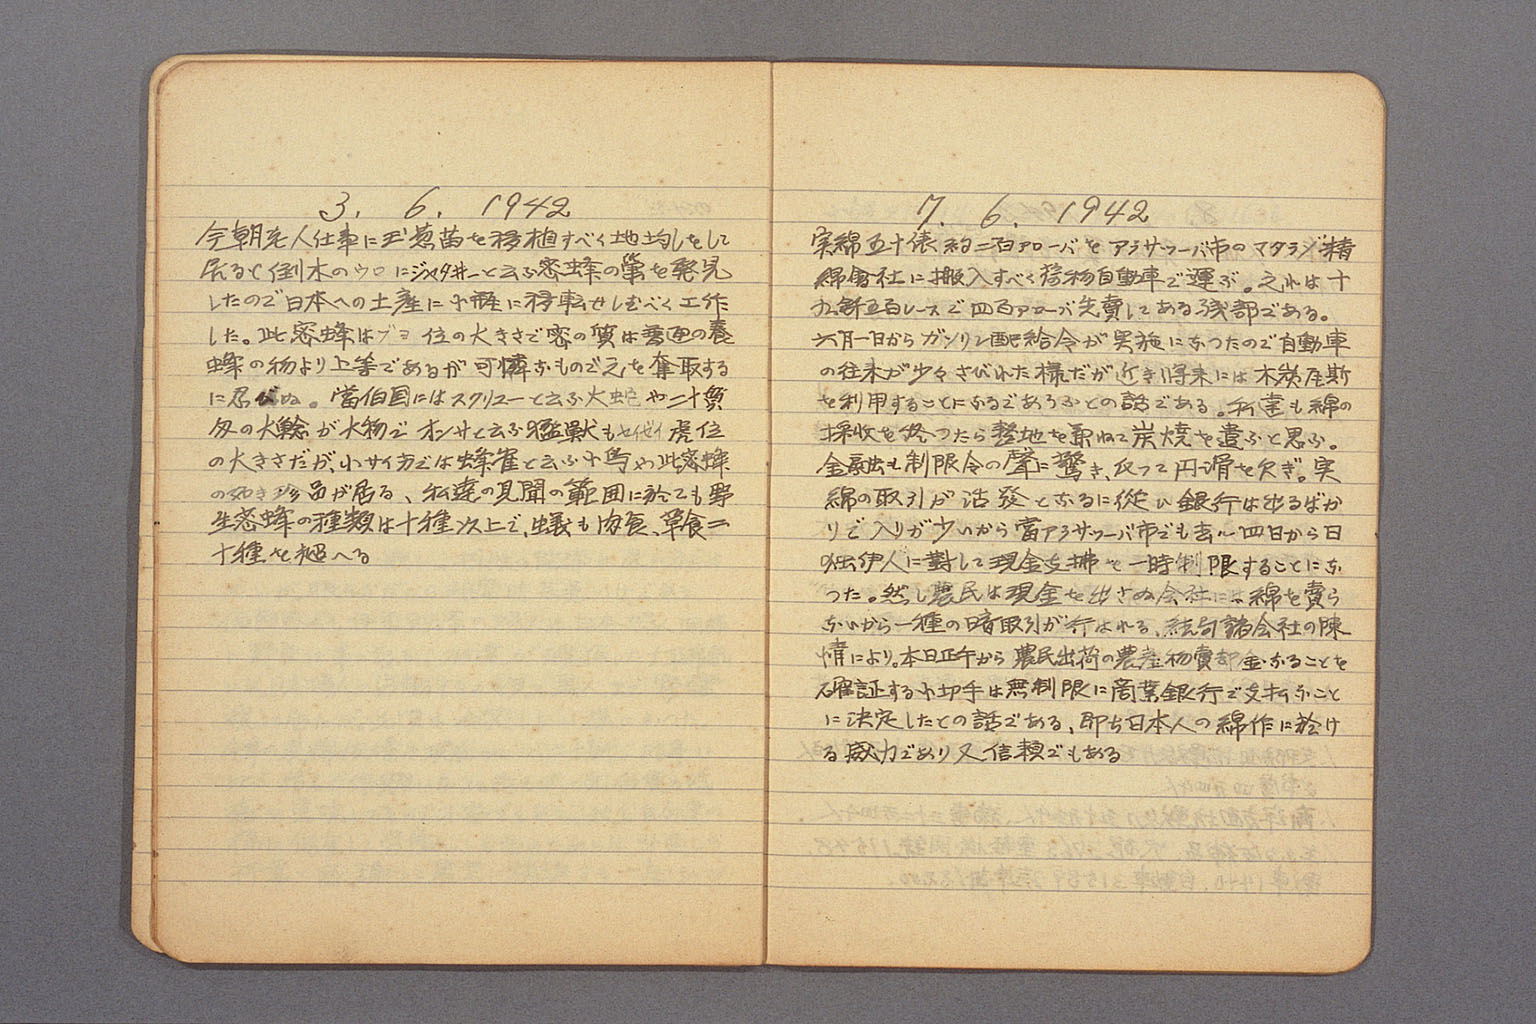 3. 6. 1942
今朝老人仕事に玉葱苗を移植すべく地均しをして
居ると倒木のウロにジャタヰーと云ふ密蜂の巣を発見
したので日本への土産に小甁に移転せしむべく工作
した。此密蜂はブヨ位の大きさで密の質は普通の養
蜂の物より上等であるが可憐なもので之を奪取する
に忍びぬ。當伯国にはスクリユーと云ふ大蛇や二十貫
匁の大鯰が大物でオンサと云ふ猛獣もセイゼイ虎位
の大きさだが、小サイ方では蜂雀と云ふ小鳥や此密蜂
の如き珍品が居る、私達の見聞の範囲に於ても野
生密蜂の種類は十種以上で、蟻も肉食、草食二
十種を超へる
7. 6. 1942
実綿五十俵約二百アローバをアラサツーバ市のマタラゾ精
綿會社に搬入すべく荷物自動車で運ぶ。之れは十
九釬五百レースで四百アローバ先賣してある残部である。
六月一日からガソリン配給令が実施になつたので自動車
の往来が少々さびれた様だが近き将来には木炭瓦斯
を利用することになるであらふとの話である。私達も綿の
採收を終つたら整地を兼ねて炭焼を遣ふと思ふ。
金融も制限令の聲に驚き、従って円滑を欠ぎ。実
綿の取引が活發となるに從ひ銀行は出るばか
りで入りが少いから當アラサツーバ市でも去ル四日から日
獨伊人に對して現金支拂を一時制限することにな
つた。然し農民は現金を出さぬ会社には綿を賣ら
ないから一種の暗取引が行はれる、結句諸会社の陳
情により。本日正午から農民出荷の農産物賣却金なることを
確証する小切手は無制限に商業銀行で支払ふこと
に決定したとの話である、即ち日本人の綿作に於け
る威力であり又信頼でもある